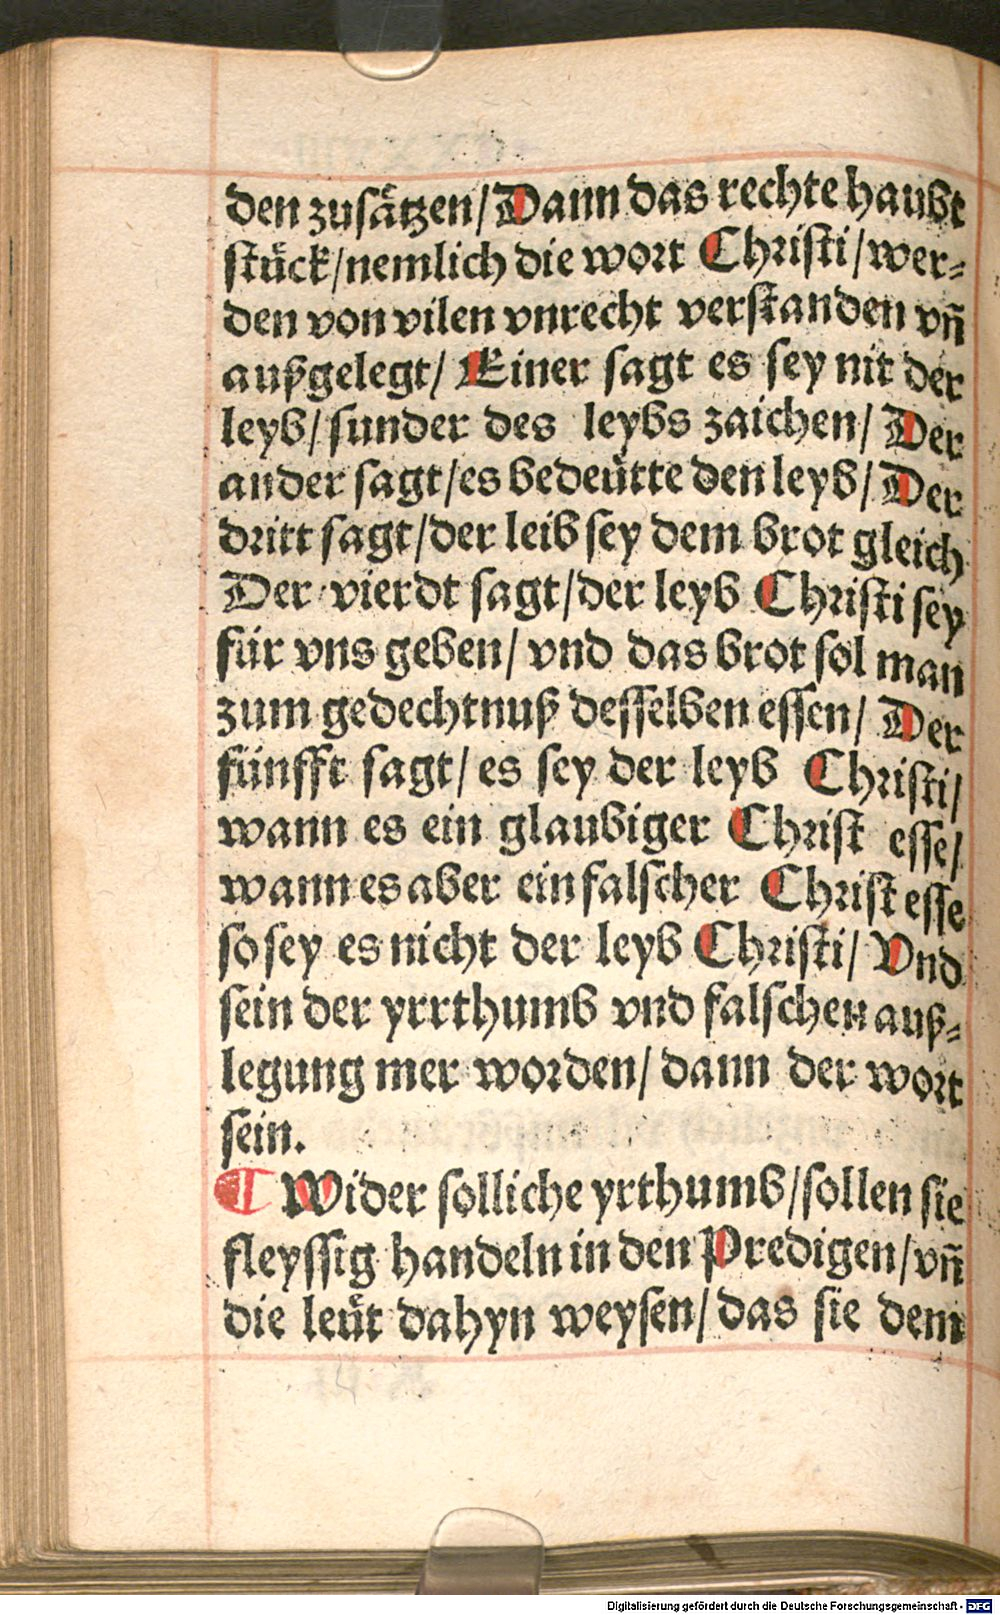 den zusätzen/Dann das rechte haubt
stück/nemlich die wort Christi/wer⸗
den von vilen vnrecht verstanden vñ
außgelegt/ Einer sagt es sey nit der
leyb/sunder des leybs zaichen/Der
ander sagt/es bedeütte den leyb/Der
dritt sagt/der leib sey dem brot gleich
Der vierdt sagt/der leyb Christi sey
für vns geben/vnd das brot sol man
zum gedechtnuß desselben essen/Der
fünfft sagt/es sey der leyb Christi/
wann es ein glaubiger Christ esse/
wann es aber ein falscher Christ esse
so sey es nicht der leyb Christi/Vnd
sein der yrrthumb vnd falschen auß⸗
legung mer worden/dann der wort
sein.
¶ Wider solliche yrthumb/sollen sie
fleyssig handeln in den Predigen/vñ
die leüt dahyn weysen/das sie dem
Digitalisierung gefördert durch die Deutsche Forschungsgemeinschaft - DFG